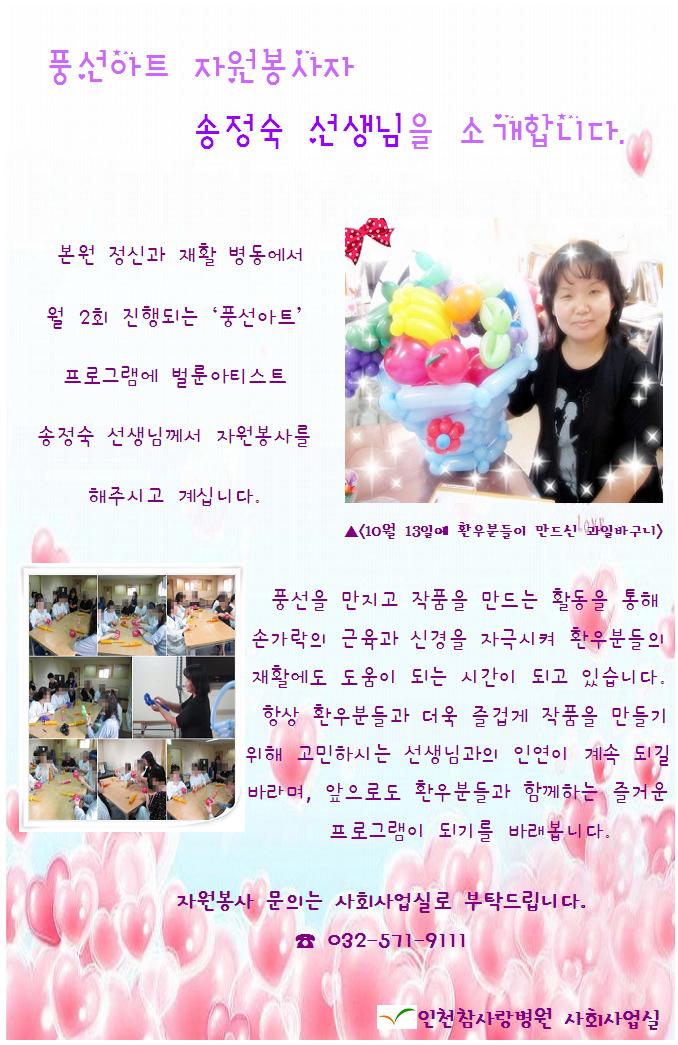 풍선아트 자원봉사자
송정숙 선생님을 소개합니다.
본원 정신과 재활 병동에서
월 2회 진행되는 ‘풍선아트’
프로그램에 벌룬아티스트
송정숙 선생님께서 자원봉사를
해주시고 계십니다.
▲<10월 13일에 환우분들이 만드신 과일바구니>
풍선을 만지고 작품을 만드는 활동을 통해
손가락의 근육과 신경을 자극시켜 환우분들의
재활에도 도움이 되는 시간이 되고 있습니다.
항상 환우분들과 더욱 즐겁게 작품을 만들기
위해 고민하시는 선생님과의 인연이 계속 되길
바라며, 앞으로도 환우분들과 함께하는 즐거운
프로그램이 되기를 바래봅니다.
자원봉사 문의는 사회사업실로 부탁드립니다.
☎ 032-571-9111
인천참사랑병원 사회사업실